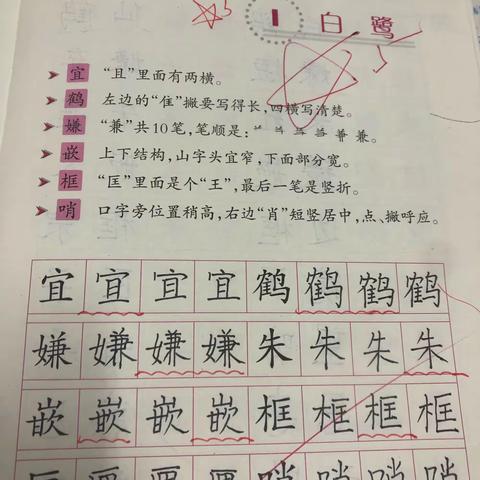 1 白鹭
宜 “且”里面有两横。
鹤 左边的“隹”撇要写得长,四横写清楚。
嫌 “兼”共10笔,笔顺是:
嵌 上下结构,山字头宜窄,下面部分宽。
框 “匡”里面是个“王”,最后一笔是竖折。
哨 口字旁位置稍高,右边“肖”短竖居中,点、撇呼应。
宜 宜 宜 宜 鹤 鹤 鹤 鹤
嫌 嫌 嫌 嫌 朱 朱 朱 朱
嵌 嵌 嵌 嵌 框 框 框 框
哨 哨 哨 哨